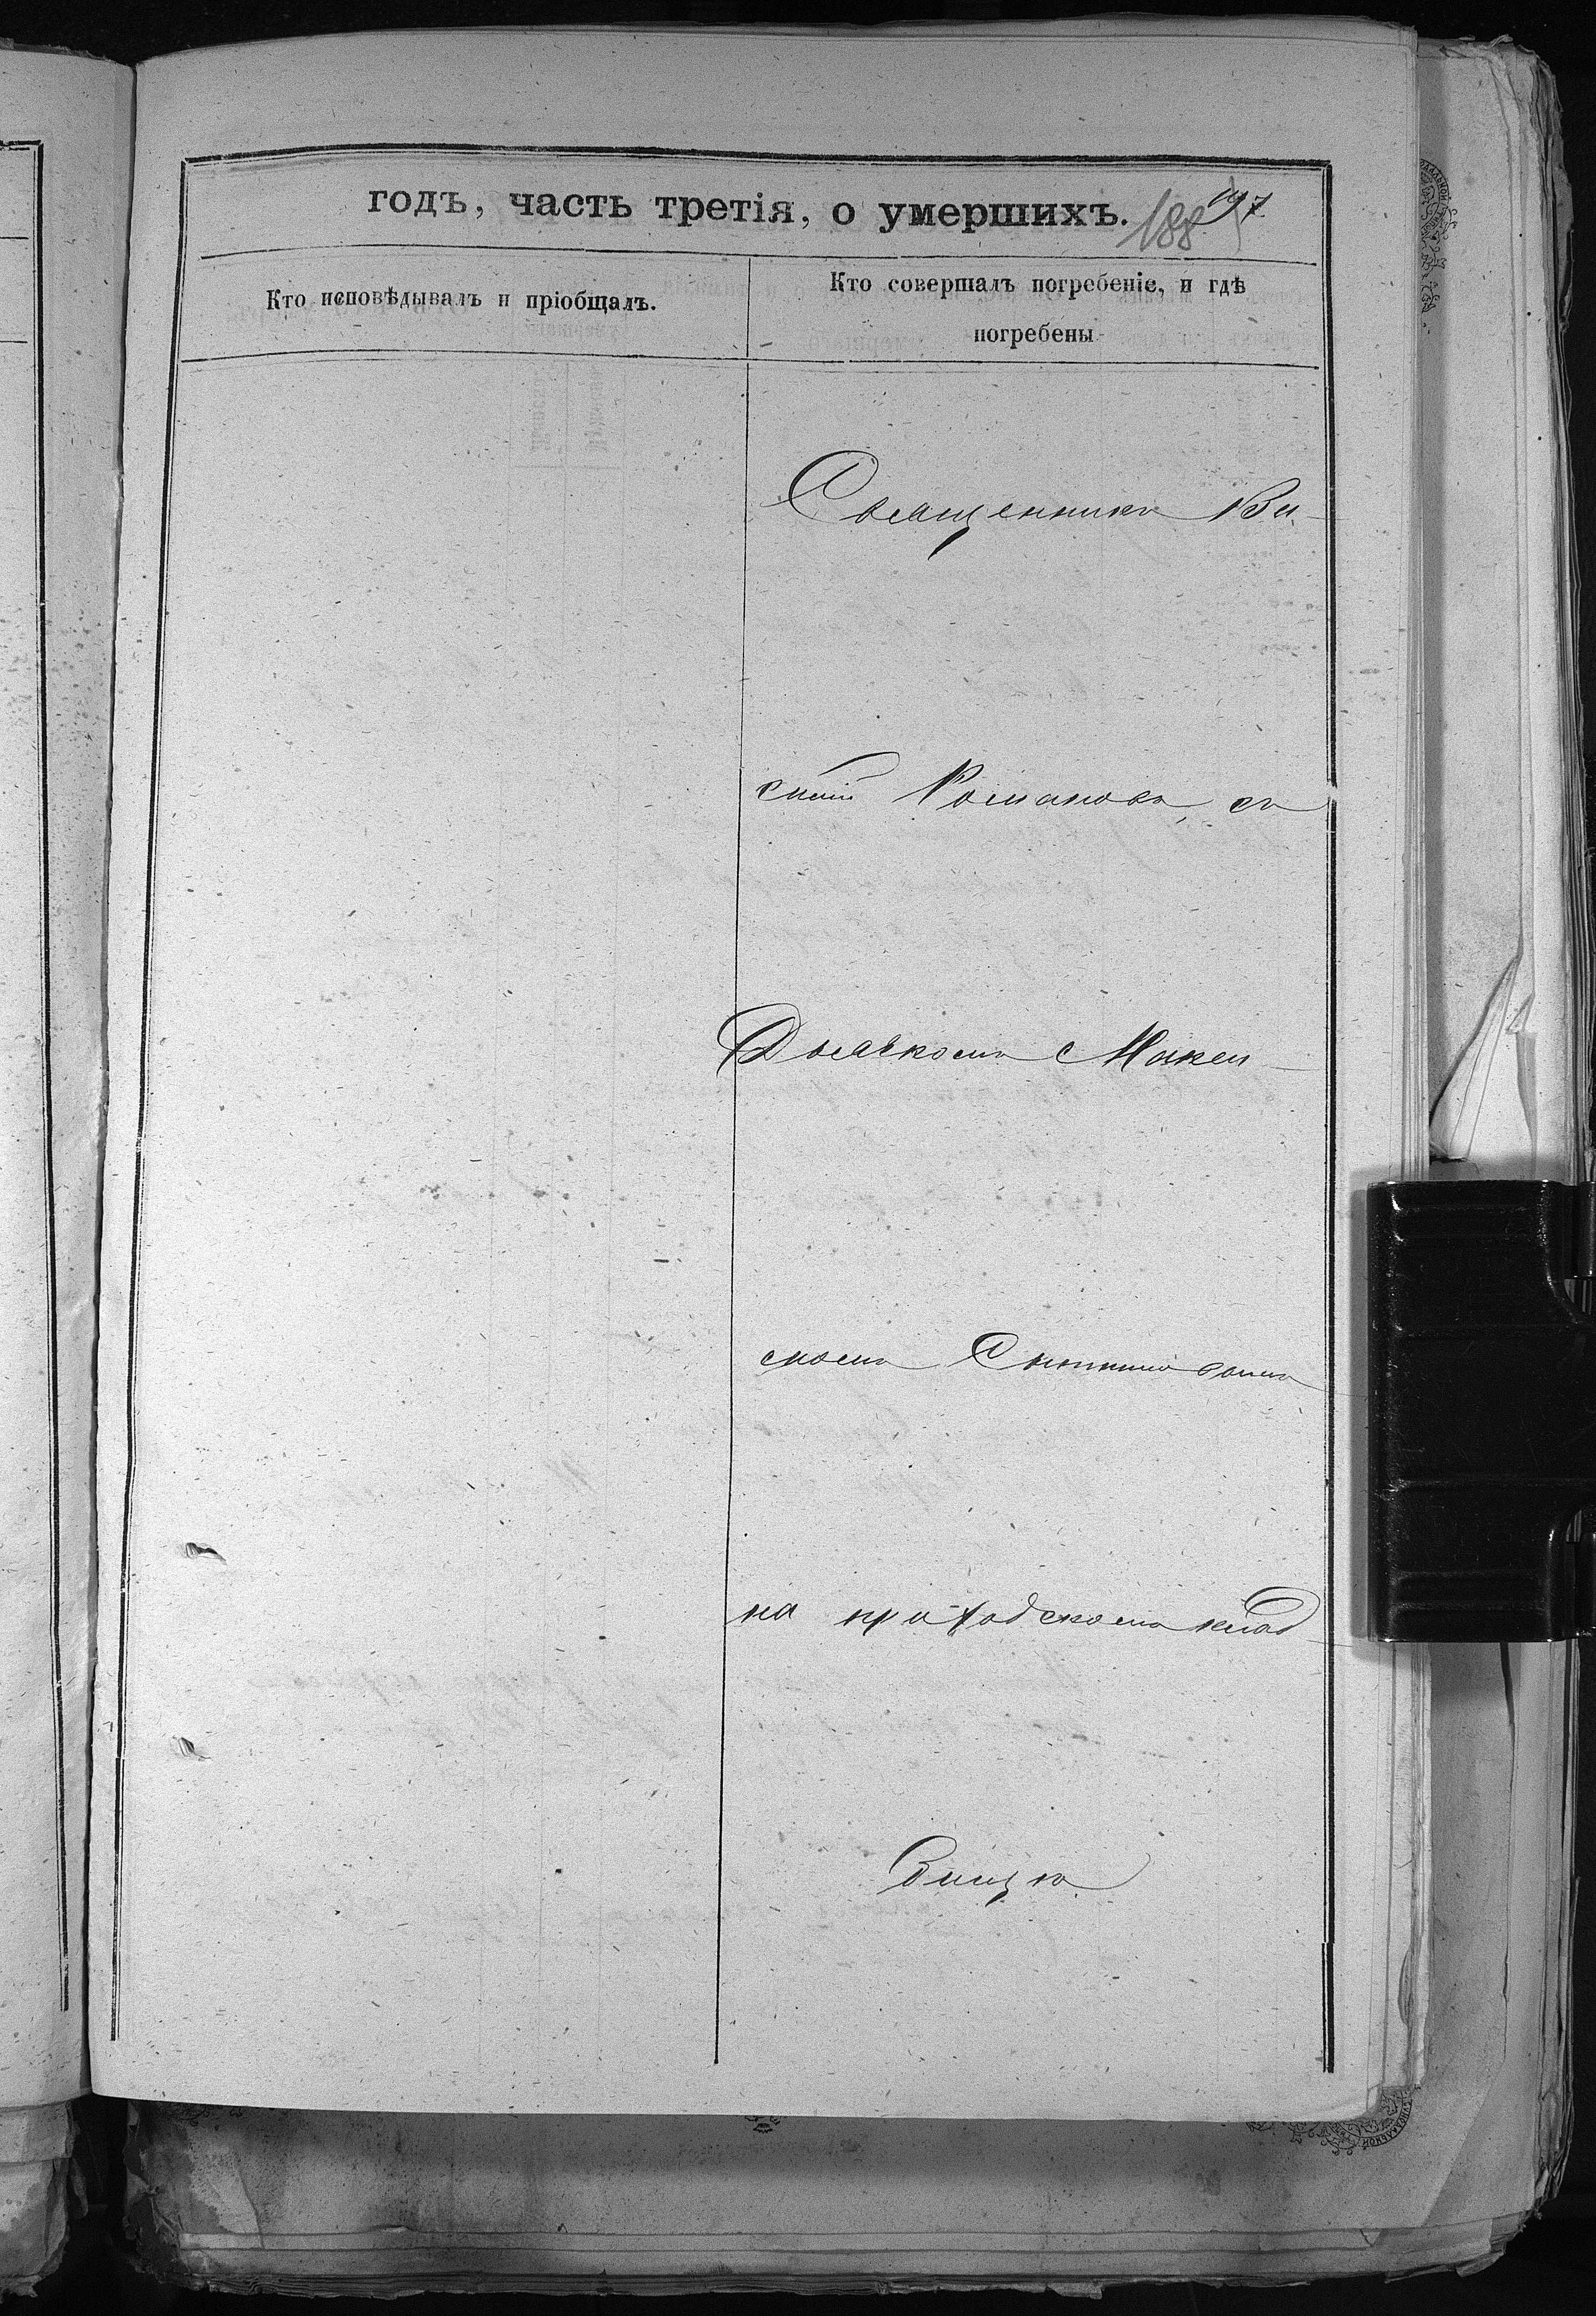 годъ, часть третія, о умершихъ. 188 197
Кто исповѣдывалъ и пріобщалъ.
Кто совершалъ погребеніе, и гдѣ
погребены
Священникъ Ви-
Романовъ, съ
Дьячкомъ
на приходскомъ клад-
бищѣ